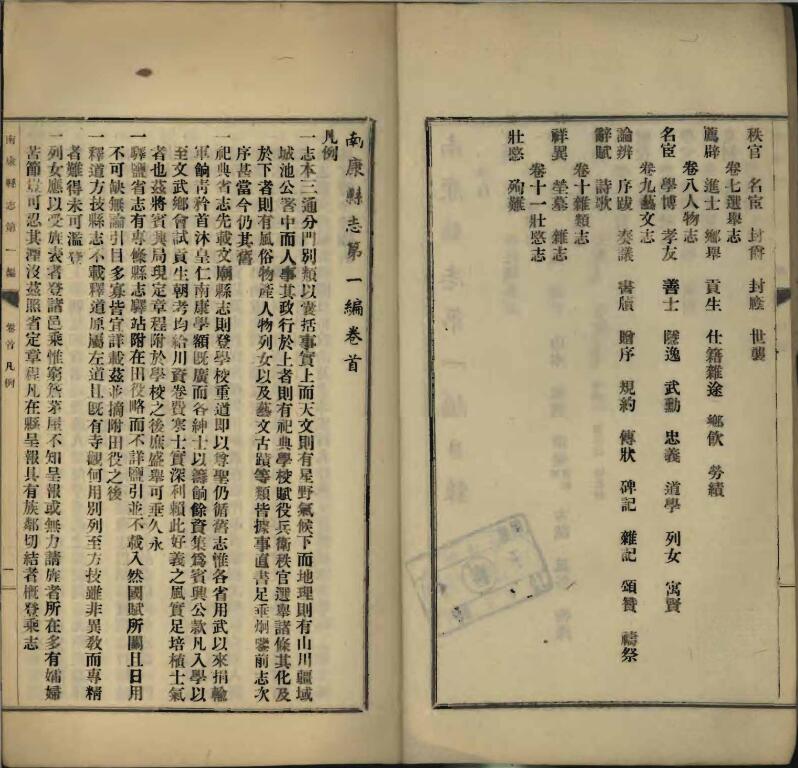 秩官 名宦 封爵 封廕 世襲
卷七選舉志
薦辟 進士 鄉舉 貢生 仕籍雜途 鄉飲 勞績
卷八人物志
名宦 學博 孝友 善士 隱逸 武勳 忠義 道學 列女 寓賢
卷九藝文志
論辨 序跋 奏議 書牘 贈序 規約 傳狀 碑記 雜記 頌贊 禱祭
辭賦 詩歌
卷十雜類志
祥異 塋墓 雜志
卷十一壯愍志
壯愍 殉難
南康縣志第一編卷首
凡例
一志本三通分門別類以囊括事實上而天文則有星野氣候下而地理則有山川疆域
城池公署中而人事其政行於上者則有祀典學校賦役兵衛秩官選舉諸條其化及
於下者則有風俗物產人物列女以及藝文古蹟等類皆據事直書足垂炯鑒前志次
序甚當今仍其舊
一祀典省志先載文廟縣志則登學校重道即以尊聖仍循舊志惟各省用武以來捐輸
軍餉青衿首沐皇仁南康學額既廣而各紳士以籌餉餘資集為賓興公款凡入學以
至文武鄉會試貢生朝考均給川資卷費寒士實深利賴此好義之風實足培植士氣
者也茲將賓興局現定章程附於學校之後庶盛舉可垂久永
一驛鹽省志有專條縣志驛站附在田役略而不詳鹽引並不載入然國賦所關且日用
不可缺無論引目多寡皆宜詳載茲並摘附田役之後
一釋道方技縣志不載釋道原屬左道且既有寺觀何用別列至方技雖非異教而專精
者難得未可濫登
一列女應以受旌表者登諸邑乘惟窮簷茅屋不知呈報或無力請旌者所在多有孀婦
苦節豈可忍其湮沒茲照省定章程凡在縣呈報具有族鄰切結者概登乘志
南康縣志第一編
卷首 凡例
一